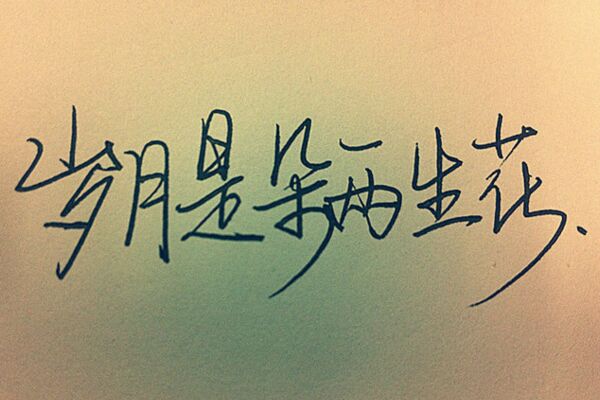 岁月是朵两生花、